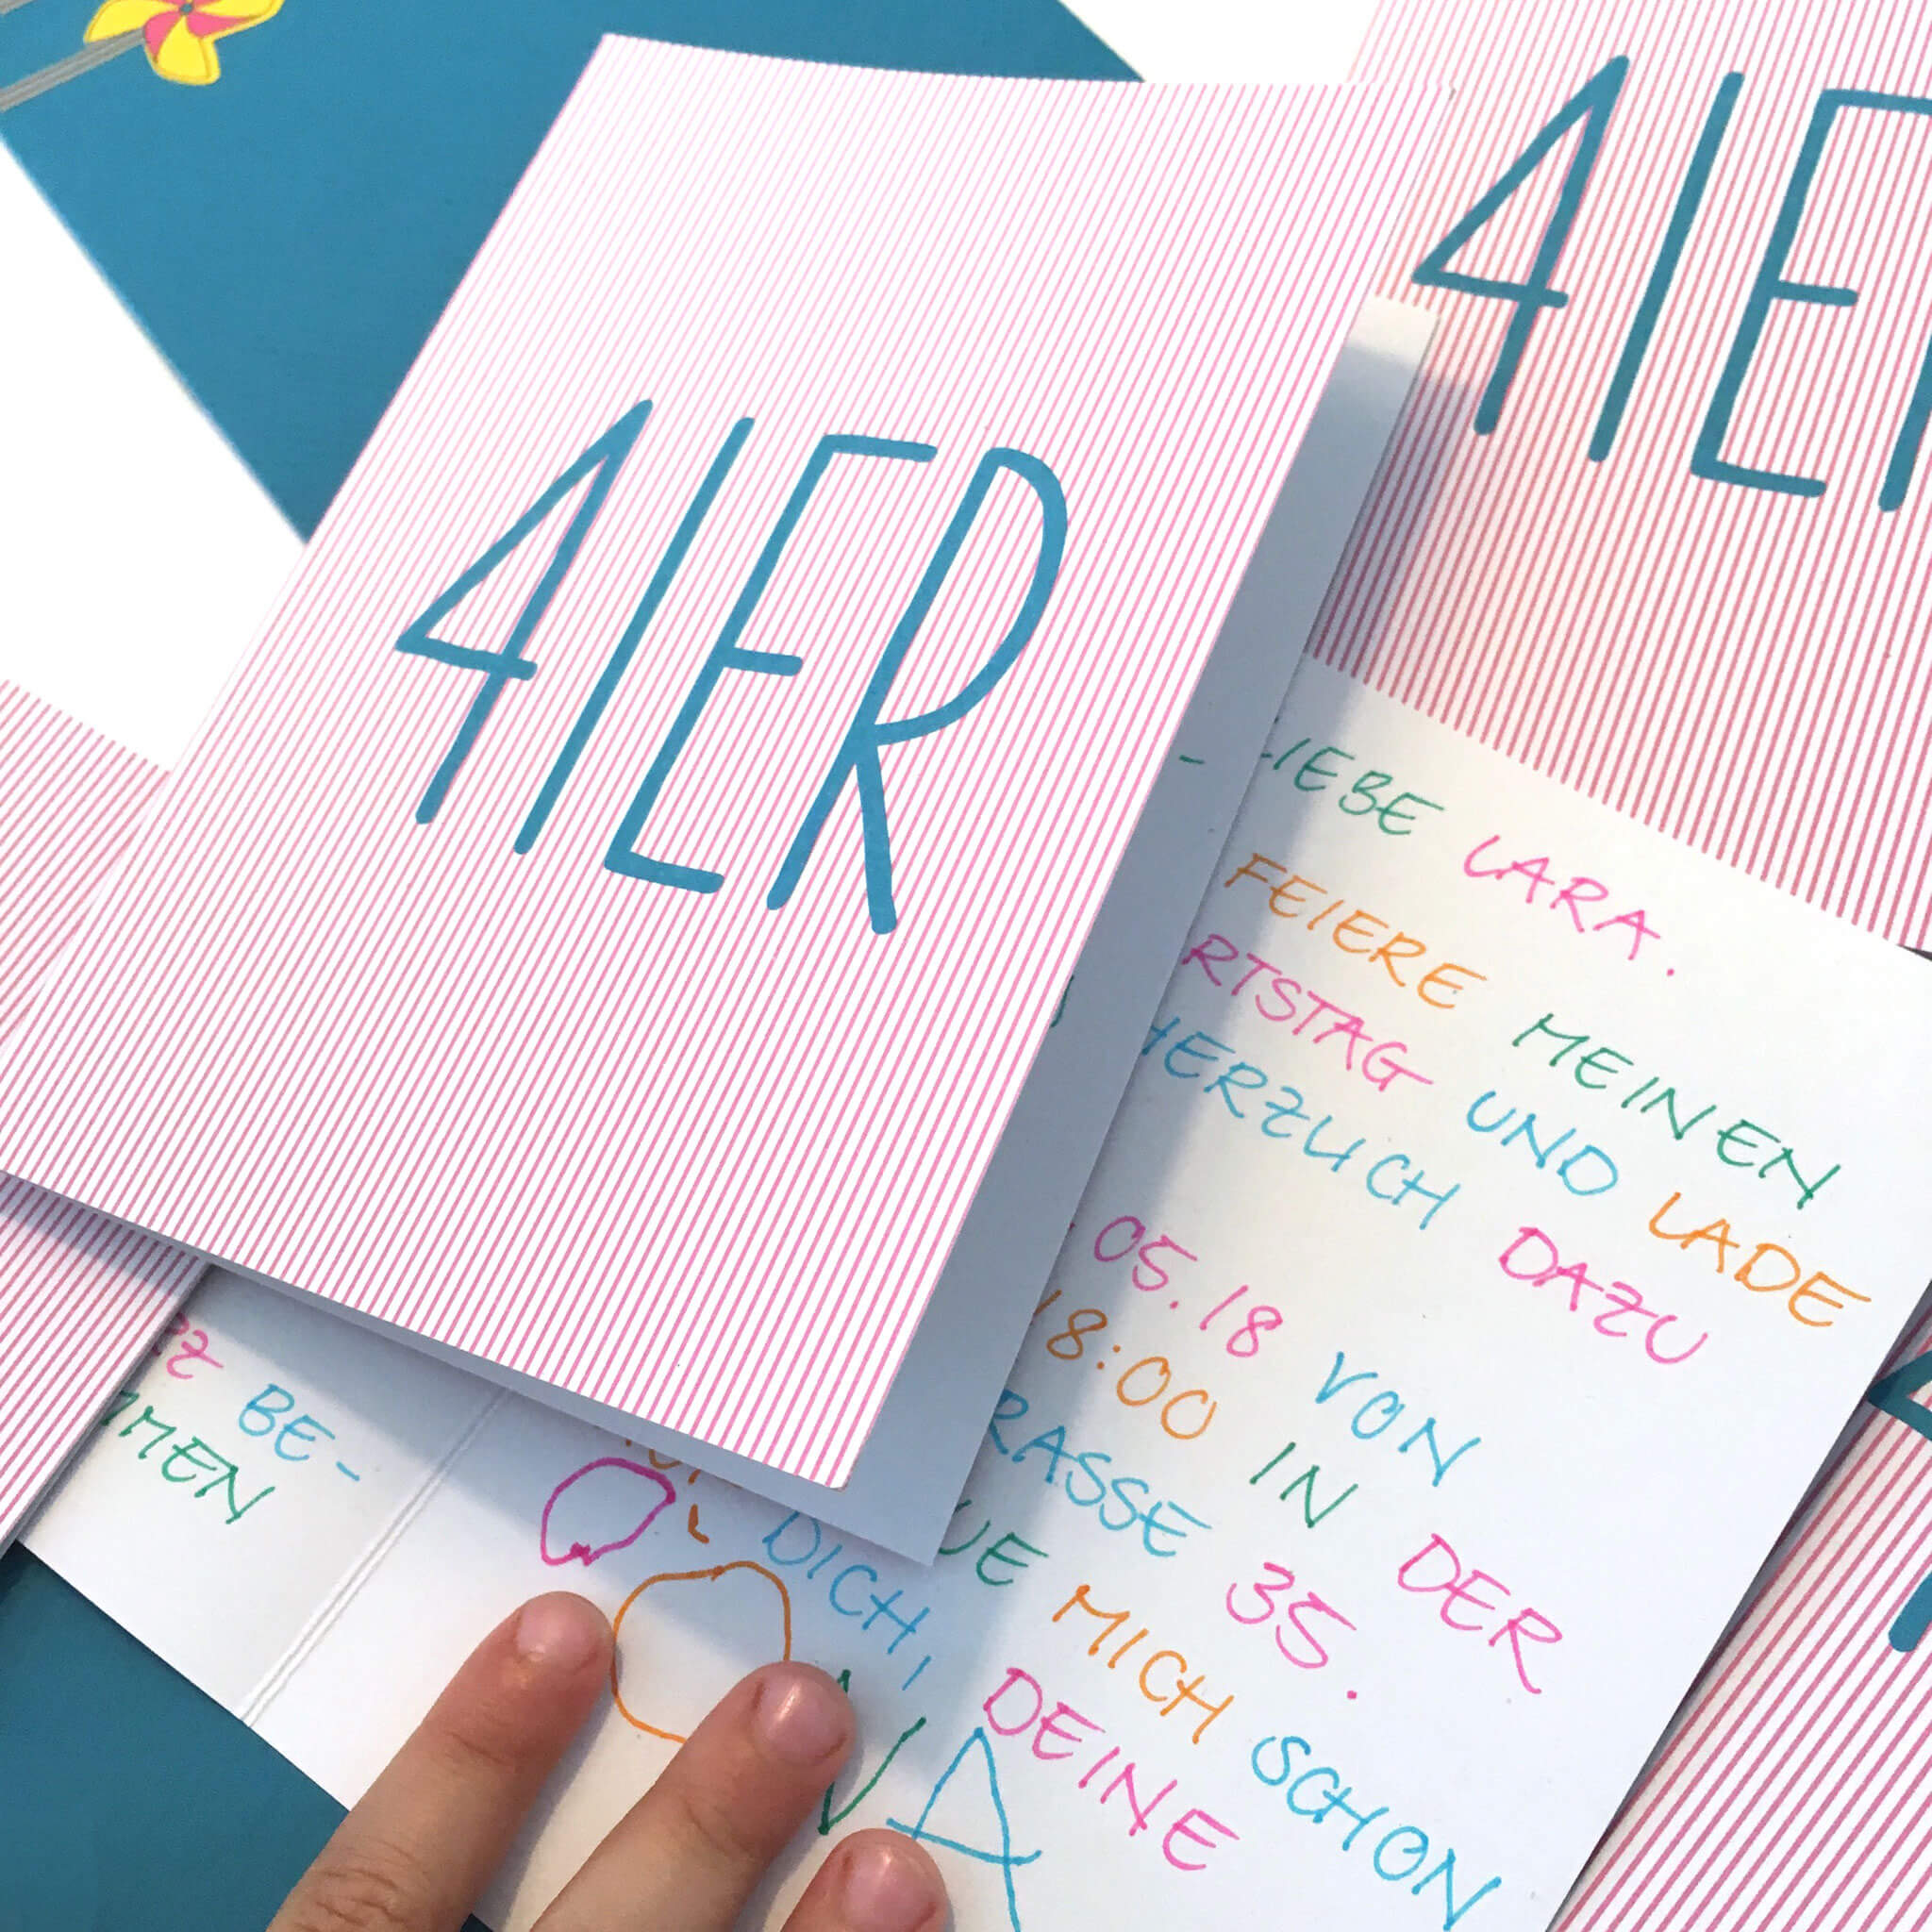 4IER
4IE
LIEBE LARA.
FEIERE MEINEN
RTSTAG UND LADE
HERZLICH DAZU
05.18 VON
18:00 IN DER
RASSE 35.
UE MICH SCHON
DICH,
DEINE
VA
Z BE-
MEN